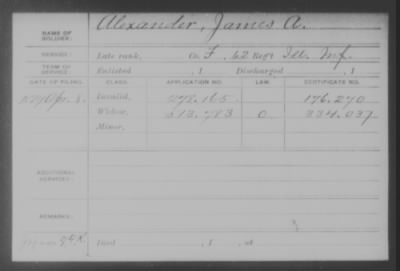 NAME OF SOLDIER: Alexander, James A.
SERVICE: Late rank, Co. F, 62 Reg't Ill. Inf.
TERM OF SERVICE: Enlisted , 1 Discharged , 1
DATE OF FILING. CLASS. APPLICATION NO. LAW. CERTIFICATE NO.
Invalid, 278.165 176.270
Widow, 513.783 O 334.037
Minor,
ADDITIONAL SERVICES:
REMARKS:
Died , 1 , at